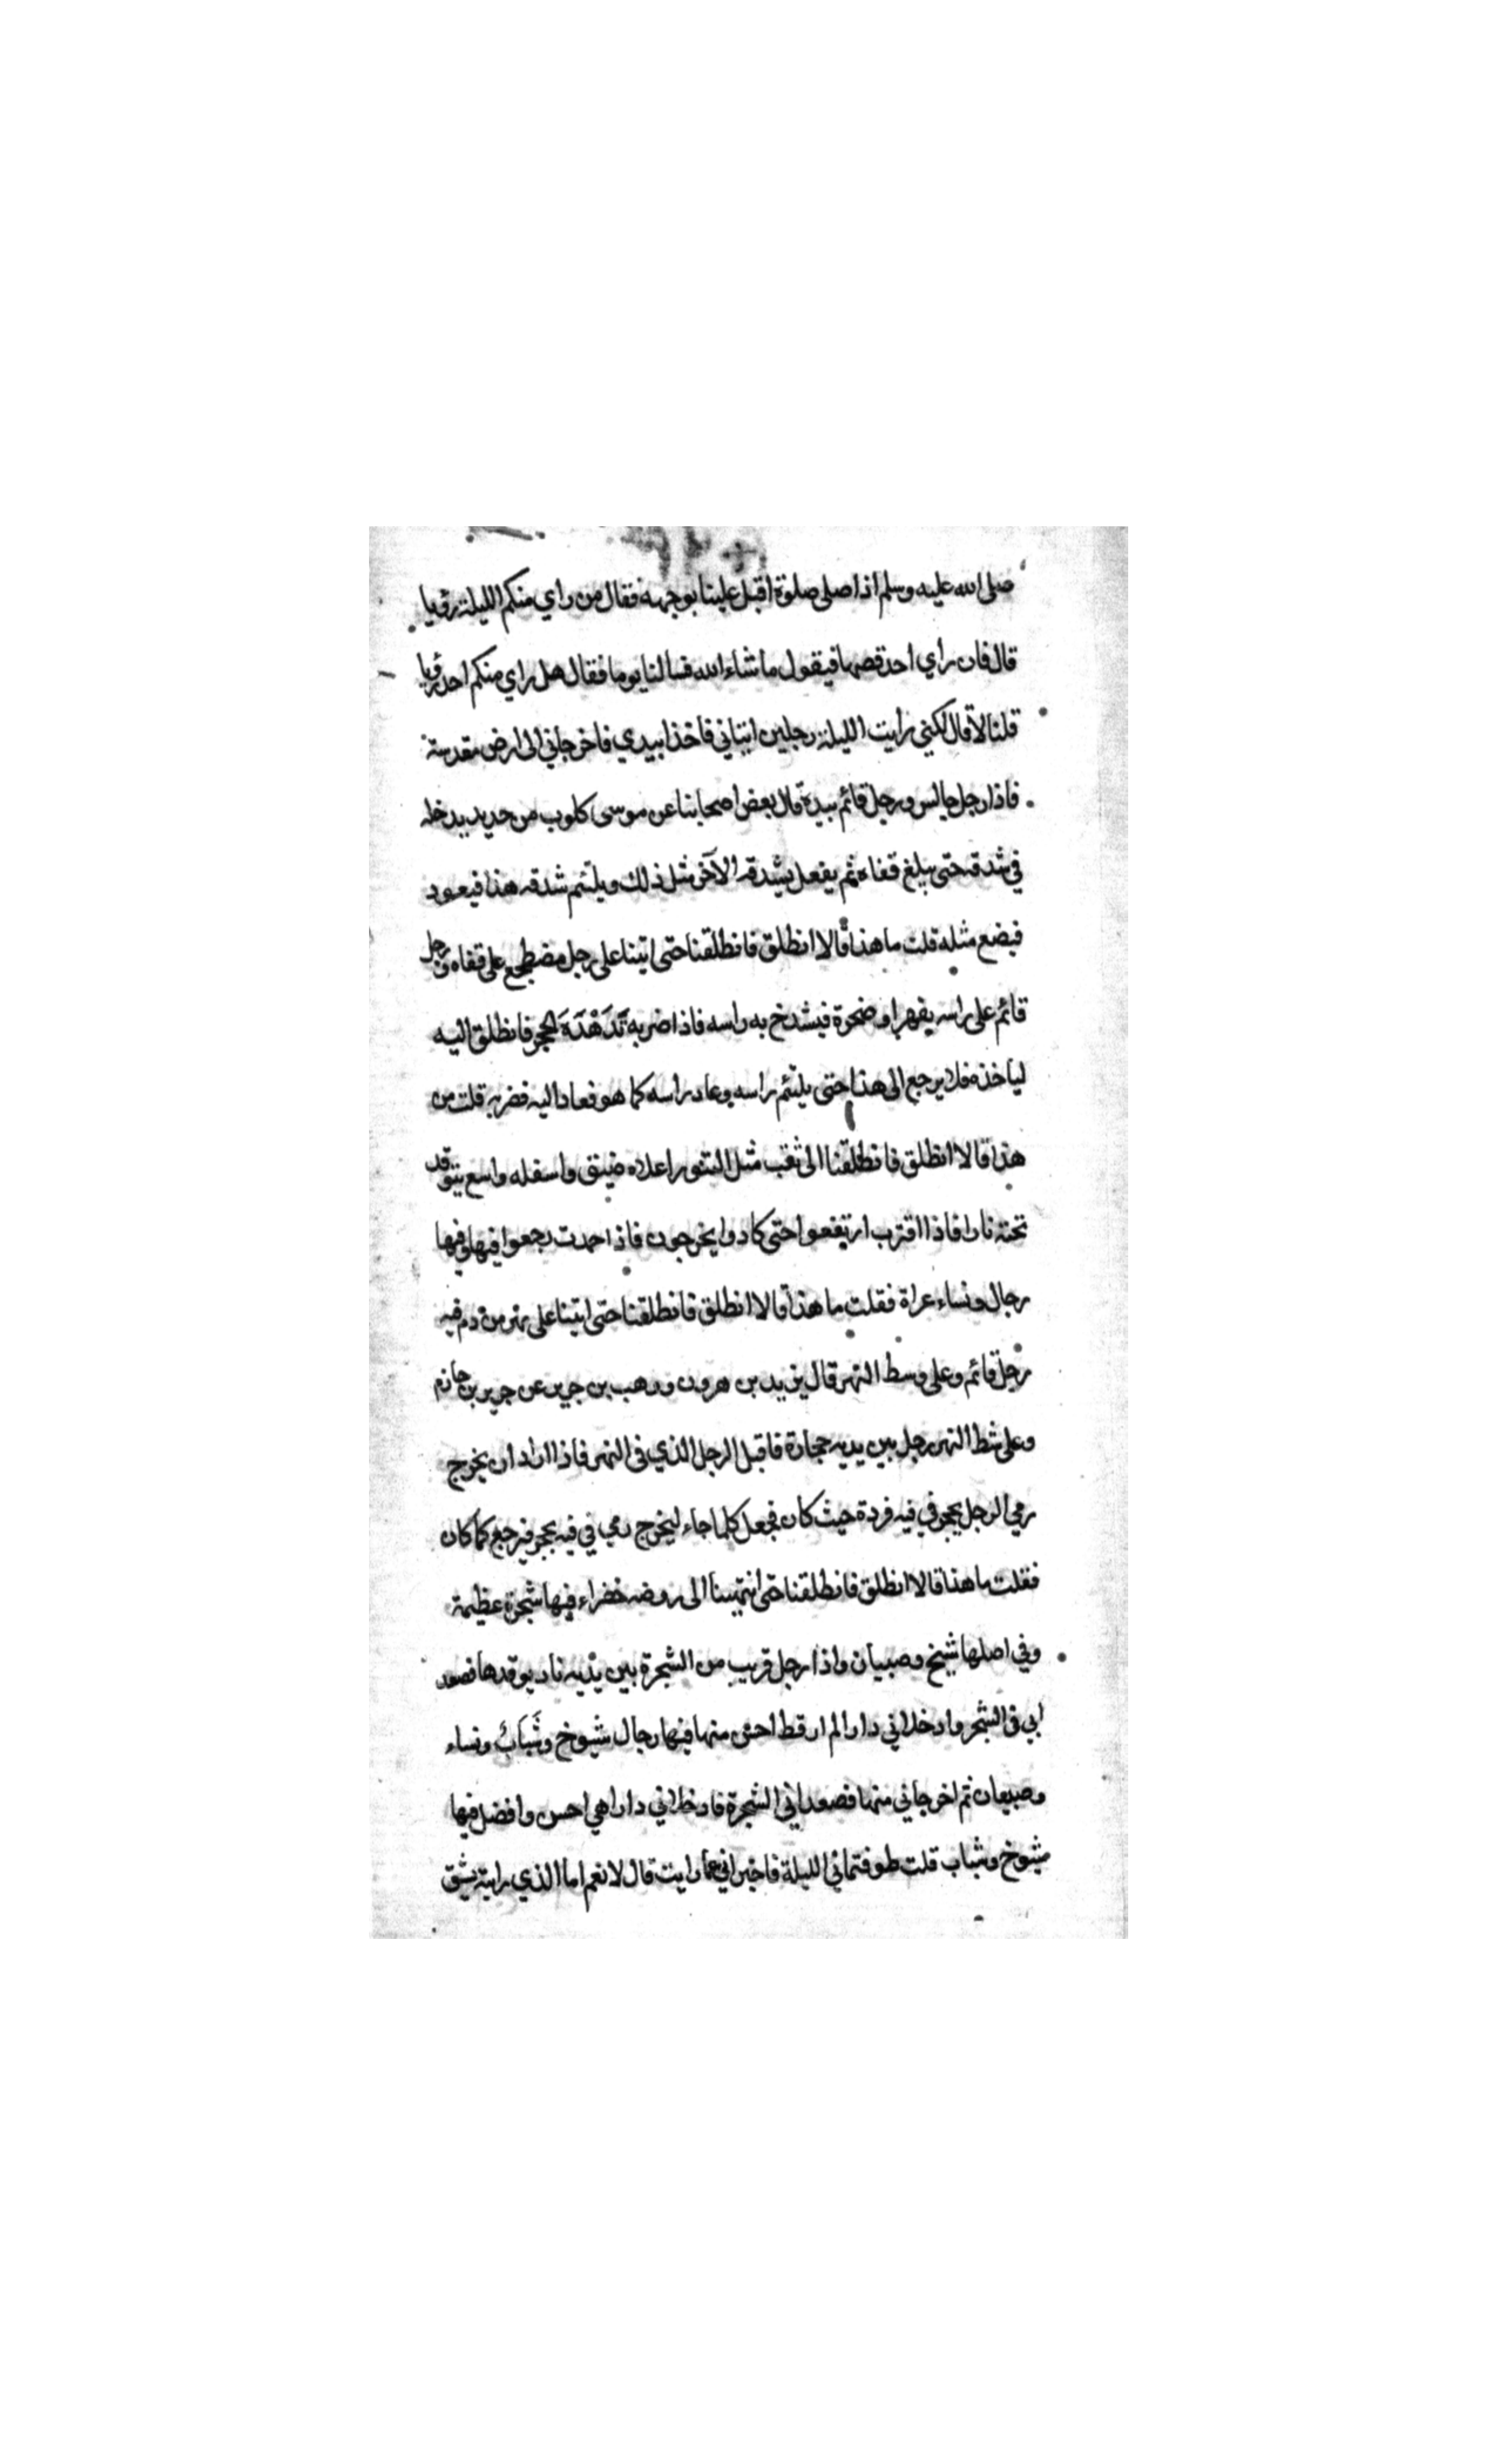 صلى الله عليه وسلم اذا صلى صلوة اقبل علينا بوجهه فقال من راي منكم الليلة رؤيا
قال فان راي احد قصها فيقول ما شاء الله فسالنا يوما فقال هل راي منكم احد رؤيا
قلنا لا قال لكني رأيت الليلة رجلين اتياني فاخذا بيدي فاخرجاني الى ارض مقدسة
فاذا رجل جالس ورجل قائم بيده قال بعض اصحابنا عن موسى كلوب من حديد يدخله
في شدقه حتى يبلغ قفاه ثم يفعل بشدقه الآخر مثل ذلك ويلتئم شدقه هذا فيعود
فيضع مثله قلت ما هذا قالا انطلق فانطلقنا حتى اتينا على رجل مضطجع على قفاه ورجل
قائم على راسه بفهر او صخرة فيشدخ به راسه فاذا ضربه تَدَهْدَهَ الحجر فانطلق اليه
لياخذه فلا يرجع الى هذا حتى يلتئم راسه وعاد راسه كما هو فعاد اليه فضربه قلت من
هذا قالا انطلق فانطلقنا الى ثقب مثل التنور اعلاه ضيق واسفله واسع يتوقد
تحته نارا فاذا اقترب ارتفعوا حتى كادوا يخرجون فاذا خمدت رجعوا فيها وفيها
رجال ونساء عراة فقلت ما هذا قالا انطلق فانطلقنا حتى اتينا على نهر من دم فيه
رجل قائم وعلى وسط النهر قال يزيد بن هرون ووهب بن جرير عن جرير بن حازم
وعلى شط النهر رجل بين يديه حجارة فاقبل الرجل الذي في النهر فاذا اراد ان يخرج
رمي الرجل بحجر في فيه فرده حيث كان فجعل كلما جاء ليخرج رمي في فيه بحجر فيرجع كما كان
فقلت ما هذا قالا انطلق فانطلقنا حتى انتهينا الى روضه خضراء فيها شجرة عظيمة
وفي اصلها شيخ وصبيان واذا رجل قريب من الشجرة بين يديه نار يوقدها فصعدا
بي في الشجر وادخلاني دارا لم ار قط احسن منها فيها رجال شيوخ وشَبَابٌ ونساء
وصبيان ثم اخرجاني منها فصعدا بي الشجرة فادخلاني دارا هي احسن وافضل فيها
شيوخ وشباب قلت طوفتماني الليلة فاخبراني عما رايت قال لا نعم اما الذي رايته يشق